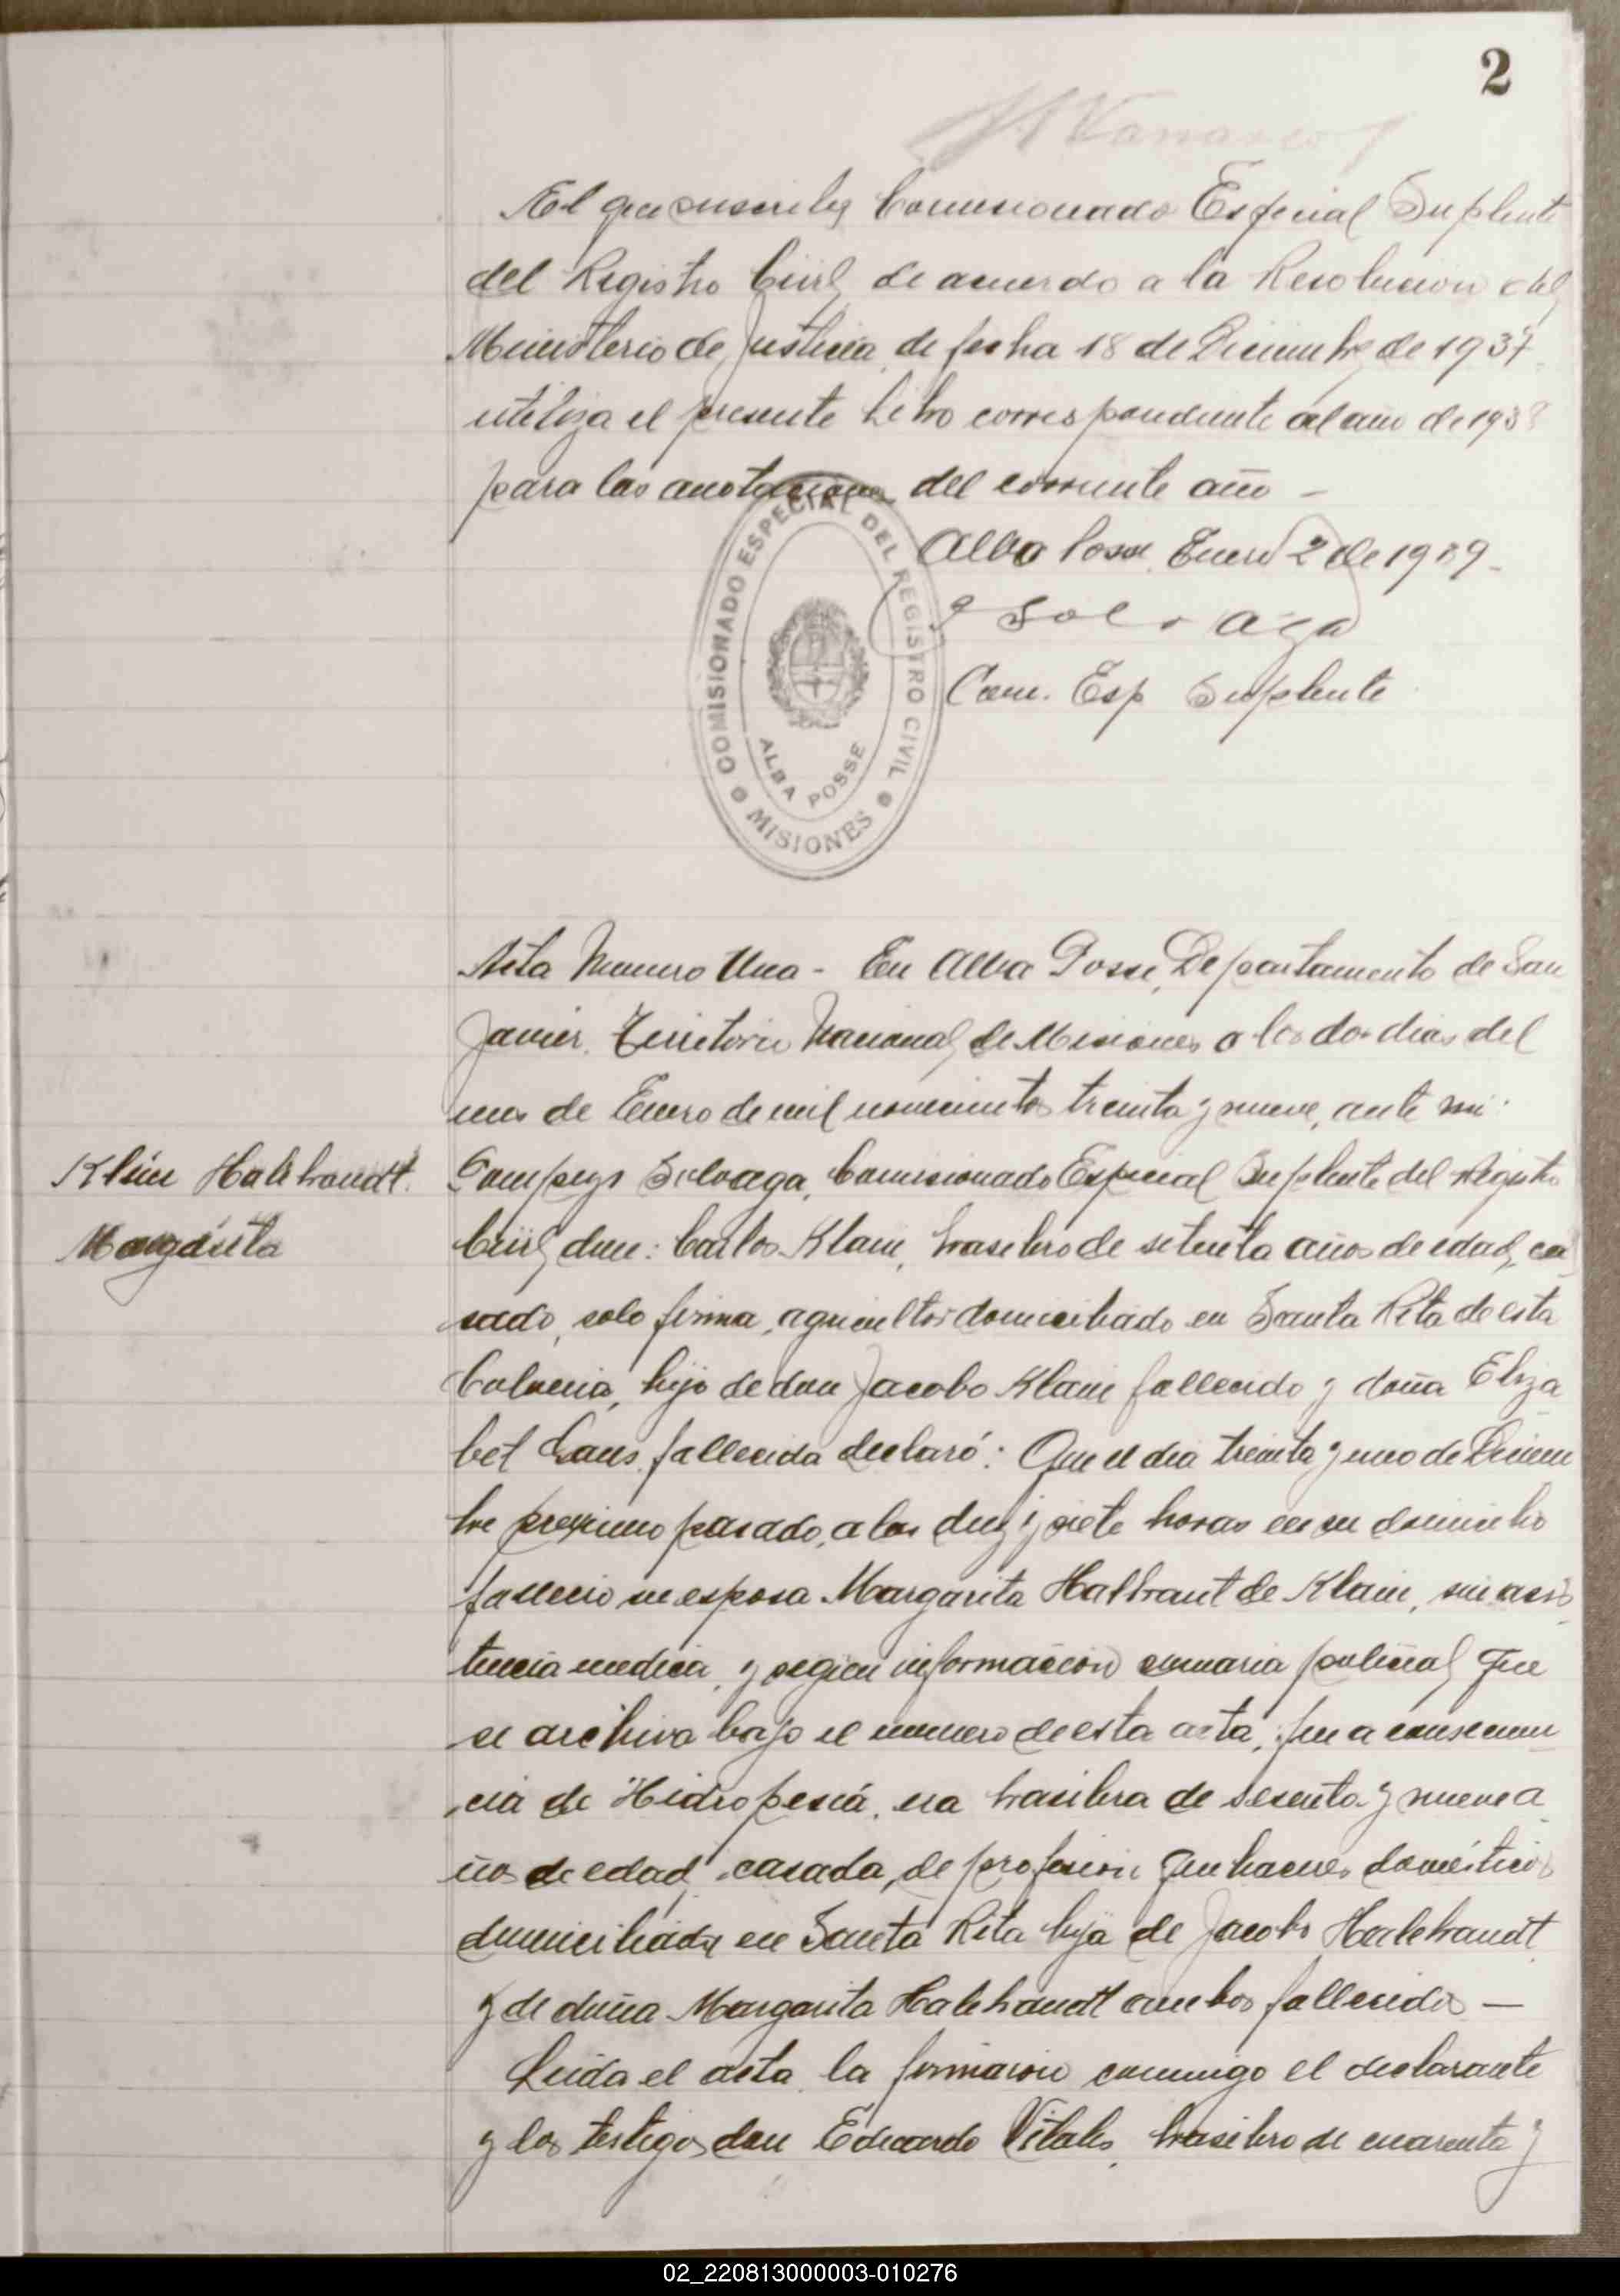 2
El que suscribe Comisionado Especial Suplente
del Registro Civil, de acuerdo a la Resolucion del
Ministerio de Justicia, de fecha 18 de Diciembre de 1937
utiliza el presente Libro correspondiente al año de 1938
para las anotaciones del corriente año -
Alba Posse, Enero 2 de 1939-
Soloaga
Com. Esp Suplente
COMISIONADO ESPECIAL DEL REGISTRO CIVIL
ALBA POSSE
MISIONES
Acta Numero Una - En Alba Posse, Departamento de San
Javier, Territorio Nacional de Misiones a los dos dias del
mes de Enero de mil novecientos treinta y nueve, ante mi:
Klein Halebrandt.
Margarita
Pompeyo Soloaga, Comisionado Especial Suplente del Registro
Civil, don: Carlos Klain, brasilero de setenta años de edad, ca
sado, solo firma, agricultor domiciliado en Santa Rita de esta
Colonia, hijo de don Jacobo Klain fallecido y doña Eliza
bet fallecida declaró: Que el dia treinta y uno de Diciem
bre proximo pasado, a las diez y siete horas en su domicilio
fallecio su esposa Margarita Halbrant de Klain, sin asis
tencia medica, y segun informacion sumaria policial que
se archiva bajo el numero de esta acta, fue a consecuen
cia de Hidropesiá, era brasilera de sesenta y nueve a
ños de edad, casada, de profesion quehaceres domésticos
domiciliada en Santa Rita hija de Jacobo Halebrandt
y de doña Margarita Halebrandt ambos fallecidos —
Leida el acta, la firmaron conmigo el declarante
y los testigos don Eduardo Vitales, brasilero de cuarenta y
02_220813000003-010276